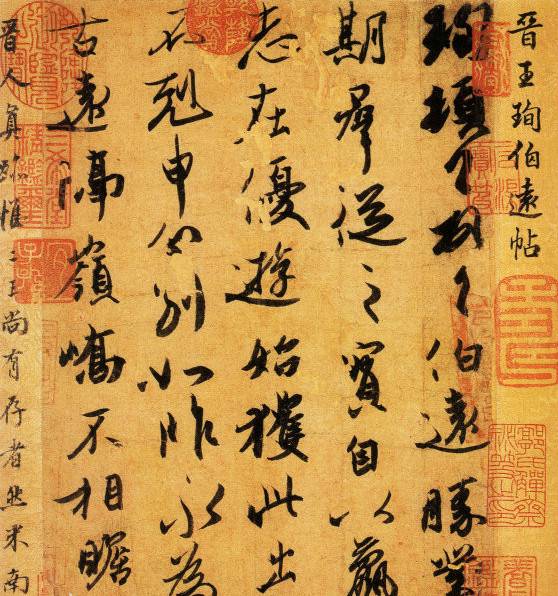 晉王珣伯遠帖
珣頓首頓首伯遠勝業
期羣從之寶自以羸
志在優遊始獲此出
不剋申分別如昨永為
古遠隔嶺嶠不相瞻
晉人真跡惟二王尚有存者然米南